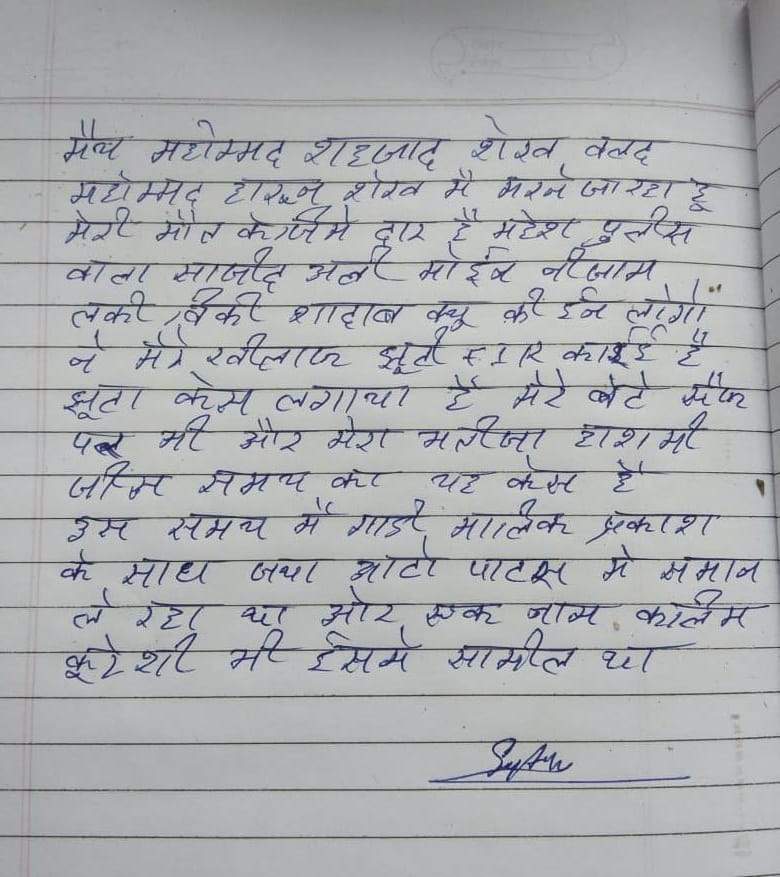 मैय महोम्मद शहजाद शेख वलद
महोम्मद हारून शेख मै मरने जा रहा हू
मेरी मौत के जिमे दार है महेश पुलीस
वाला साजीद अली मोईन नीजाम
लकी, विकी शाहाब क्यू की ईन लोगो
ने मेरे खीलाफ झूटी FIR काई है
झूटा केस लगाया है मेरे बेटे सैफ
पर भी और मेरा भतीजा हाशमी
जीस समय का यह केस है
इस समय मैं गाडी मालिक प्रकाश
के साथ जया आटो पाटस मे समान
ले रहा था ओर एक नाम कालिम
कूरेशी भी ईसमे सामील था